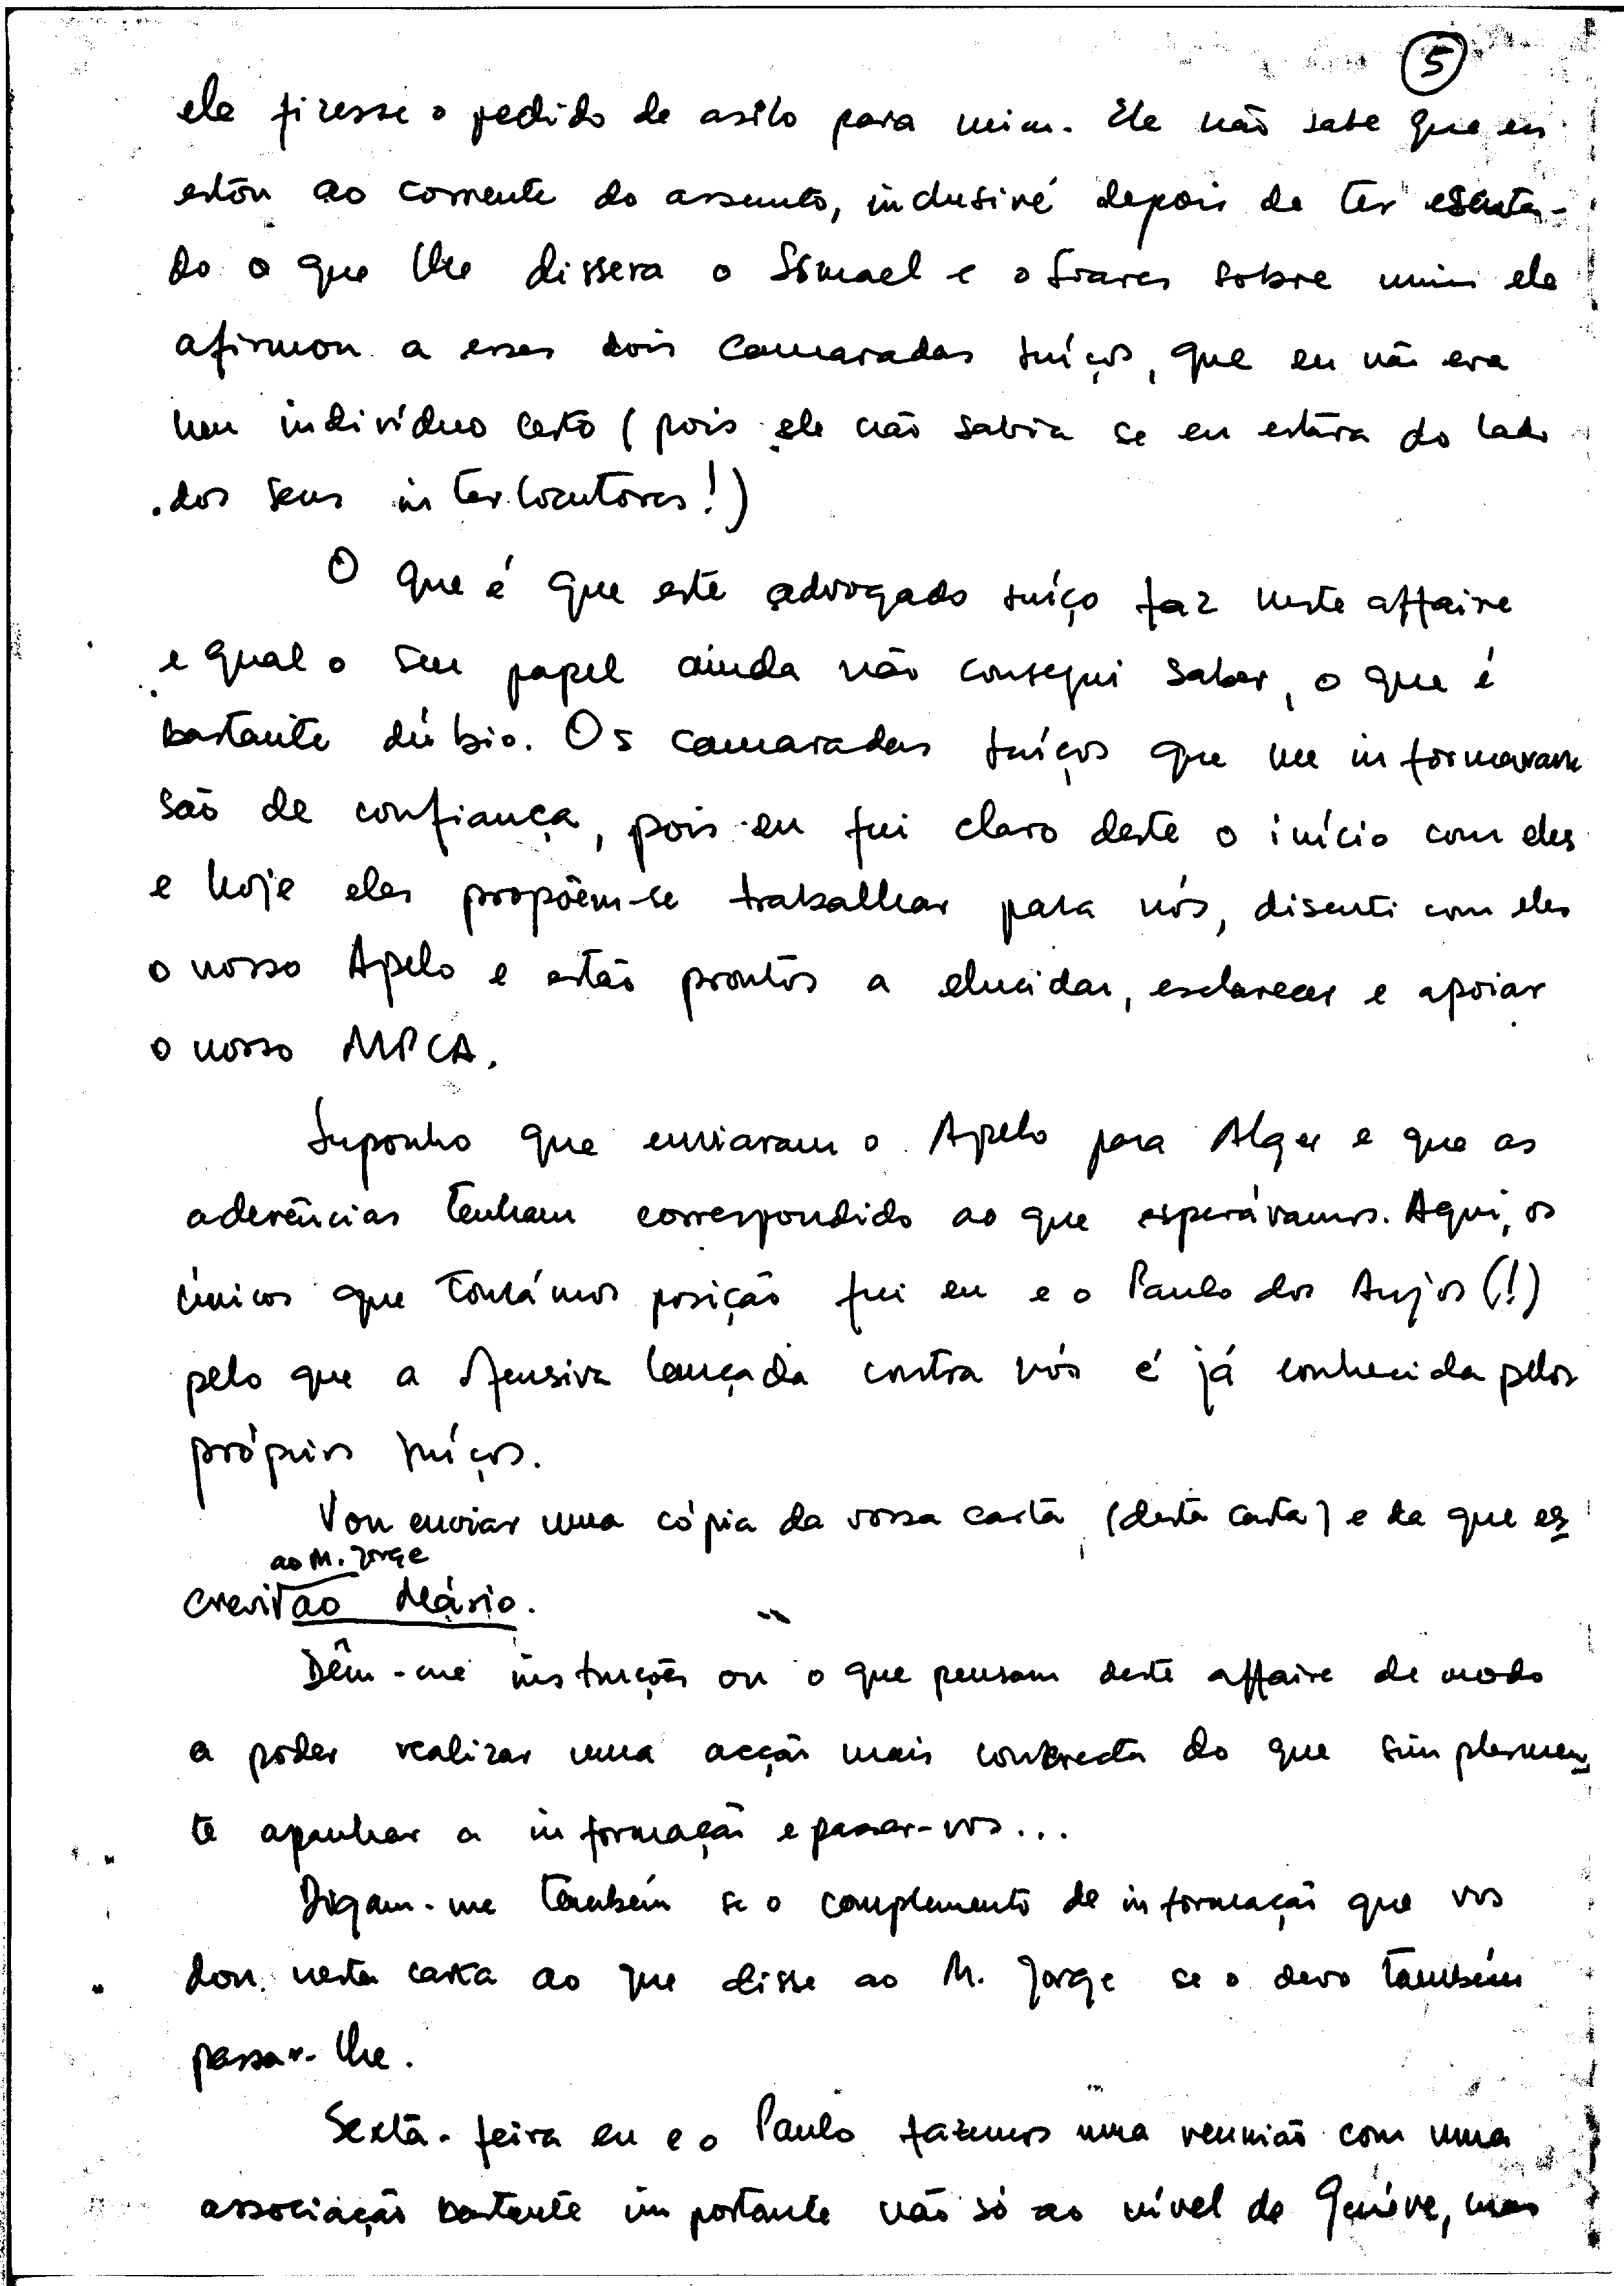 5
ele fizesse o pedido de asilo para mim. Ele não sabe que eu
estou ao corrente do assunto, inclusivé depois de ter escuta-
do o que lhe dissera o Ismael e o Soares sobre mim ele
afirmou a esses dois camaradas suíços, que eu não era
um indivíduo certo (pois ele não sabia se eu estava do lado
dos seus interlocutores!)
O que é que este advogado suíço faz neste affaire
e qual o seu papel ainda não consegui saber, o que é
bastante dúbio. Os camaradas suíços que me informaram
são de confiança, pois eu fui claro deste o início com eles
e hoje eles propõem-se trabalhar para nós, discuti com eles
o nosso Apelo e estão prontos a elucidar, esclarecer e apoiar
o nosso MPCA.
Suponho que enviaram o Apelo para Alger e que as
aderências tenham correspondido ao que esperávamos. Aqui, os
únicos que tomámos posição fui eu e o Paulo dos Anjos (!)
pelo que a ofensiva lançada contra nós é já conhecida pelos
próprios suíços.
Vou enviar uma cópia da vossa carta (desta carta) e da que es
ao M. Jorge
crevi ao Mário.
Dêm-me instruções ou o que pensam deste affaire de modo
a poder realizar uma acção mais concreta do que simplesmen
te apanhar a informação e passar-vos...
Digam-me também se o complemento de informação que vos
dou nesta carta ao que disse ao M. Jorge se o devo também
passar-lhe.
Sexta-feira eu e o Paulo fazemos uma reunião com uma
associação bastante importante não só ao nível de Genève, mas